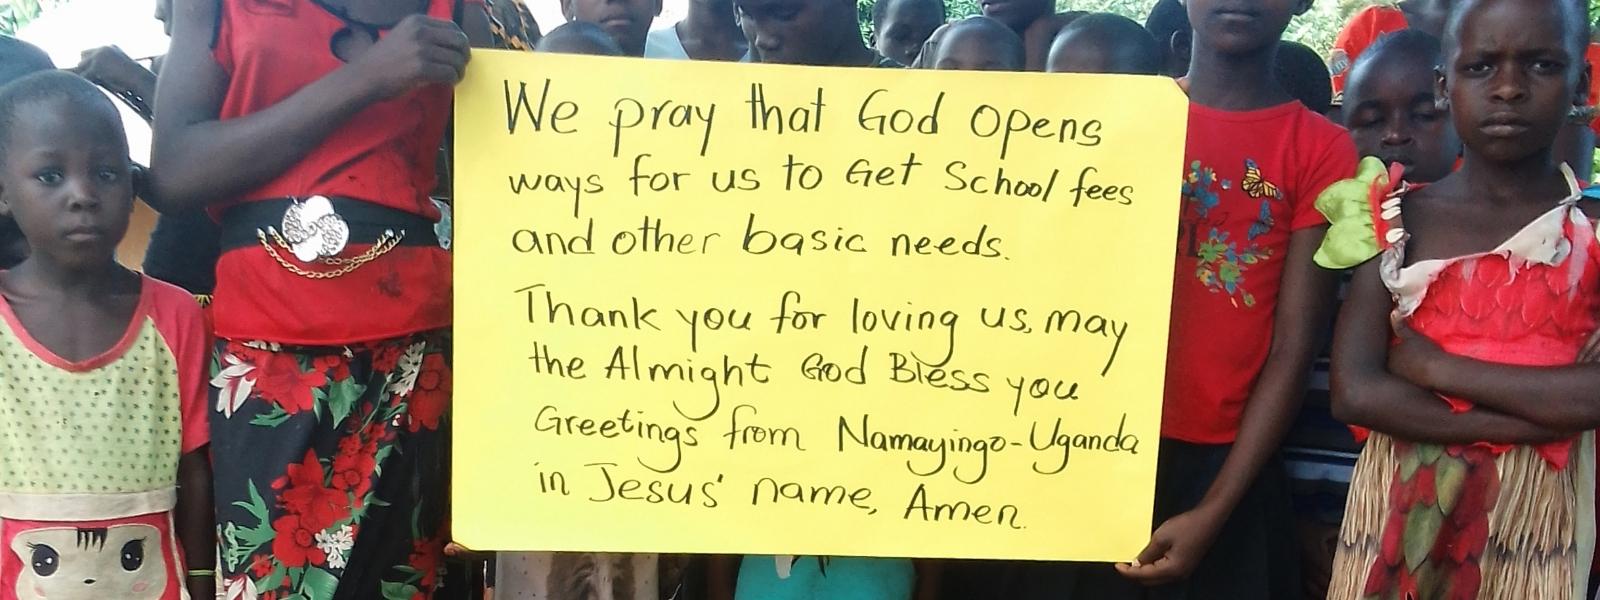 We pray that God Opens
ways for us to Get School fees
and other basic needs.
Thank you for loving us, may
the Almight God Bless you
Greetings from Namayingo-Uganda
in Jesus' name, Amen.